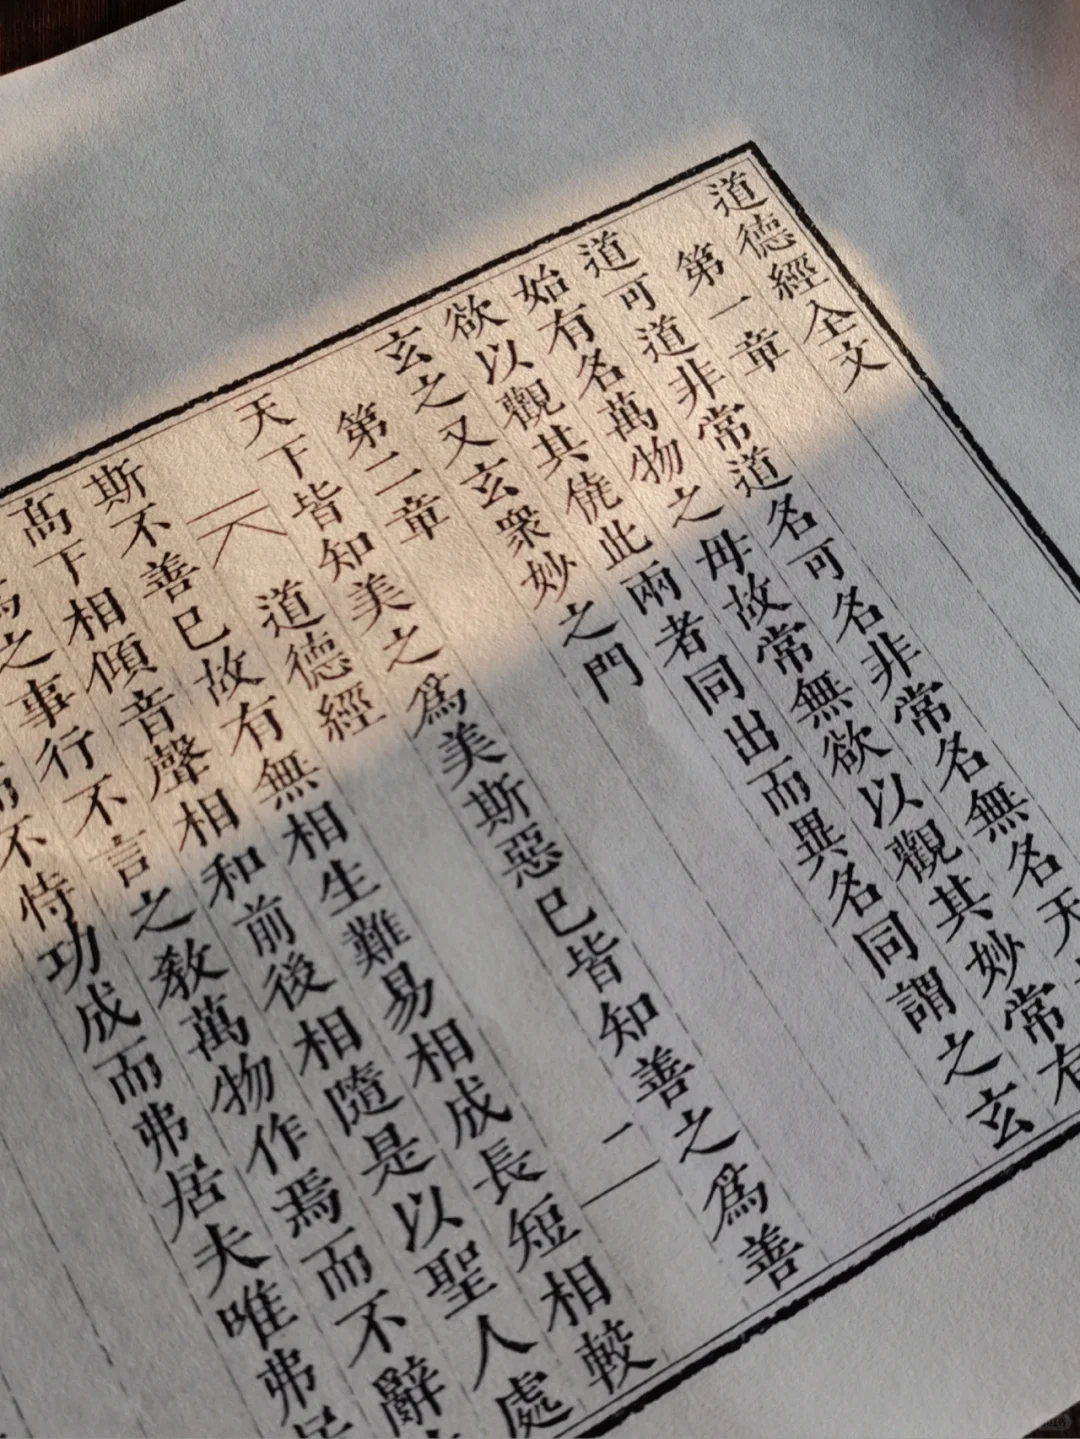 道德經全文
第一章
道可道非常道名可名非常名無名天
始有名萬物之母故常無欲以觀其妙常有
欲以觀其僥此兩者同出而異名同謂之玄
玄之又玄衆妙之門
第二章
天下皆知美之爲美斯惡已皆知善之爲善
道德經
二
斯不善已故有無相生難易相成長短相較
髙下相傾音聲相和前後相隨是以聖人處
爲之事行不言之敎萬物作焉而不辭
不恃功成而弗居夫唯弗居